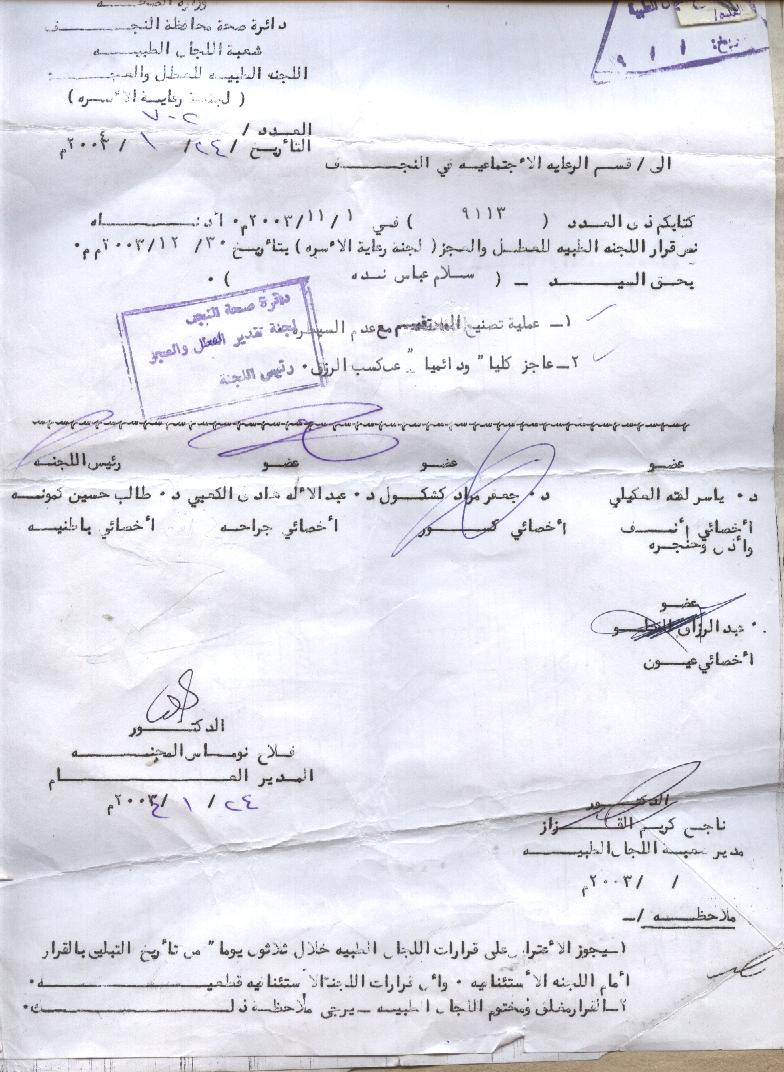 وزارة الصحـــة
دائرة صحة محافظة النجـــف
شعبة اللجان الطبيـــه
اللجنه الطبيه للعطل والعجـــز
( لجنـة رعايـة الأسره )
العـدد / ٧٠٢
التأريخ / ٢٤ / ١ / ٢٠٠٤م
الى / قسم الرعايه الأجتماعيه في النجـــف
كتابكم ذي العدد ( ٩١١٣ ) في ١ / ١١ / ٢٠٠٣م٠ أدنـــاه
نص قرار اللجنه الطبيه للعطـل والعجز ( لجنة رعاية الأسره ) بتأريخ ٣٠ / ١٢ / ٢٠٠٣م م٠
بحق السيـــد ـ ( سـلام عباس نـده ) ٠
١ـ عملية تصنيع مع عدم السيطره
٢ـ عاجز كليا" ودائميا" عن كسب الرزق ٠
دائرة صحة النجف
لجنة تقدير العطل والعجز
رئيس اللجنة
عضـو عضـو عضـو رئيس اللجنـه
د٠ ياسر لفته العكيلي د٠ جعفر مراد كشكـول د٠ عبد الأله هادي الكعبي د٠ طالب حسين كمونـه
أخصائي أنـــف أخصائي كســـور أخصائي جراحـه أخصائي باطنيـه
وأذن وحنجره
عضـو
عبد الرزاق
أخصائي عيـــون
الدكتـــور
فـلاح نومـاس المحنـــه
المدير العـــام
٢٤ / ١ / ٢٠٠٤م
الدكتـــور
ناجـي كريـم القـــزاز
مدير شعبـة اللجان الطبيـــه
/ / ٢٠٠٣م
ملاحظـــه /ـ
١ـ يجوز الأعتراض على قرارات اللجان الطبيه خلال ثلاثون يوما" من تأريخ التبليغ بالقرار
أمام اللجنه الأستئنافيه ٠ وأن قرارات اللجنة الأستئنافيه قطعيـــه٠
٢ـ القرار مغلق ومختوم اللجان الطبيـه ـ يرجى ملاحظـة ذلـــك٠